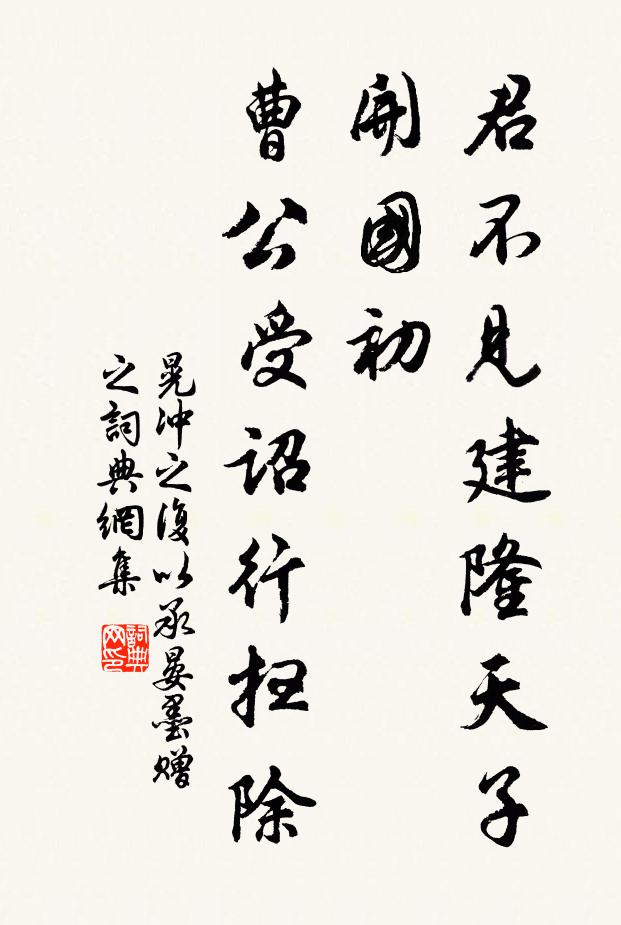 君不見建隆天子
開國初
曹公受詔行扫除
晁冲之復以承晏墨贈
之詞典網集
詞典
网印